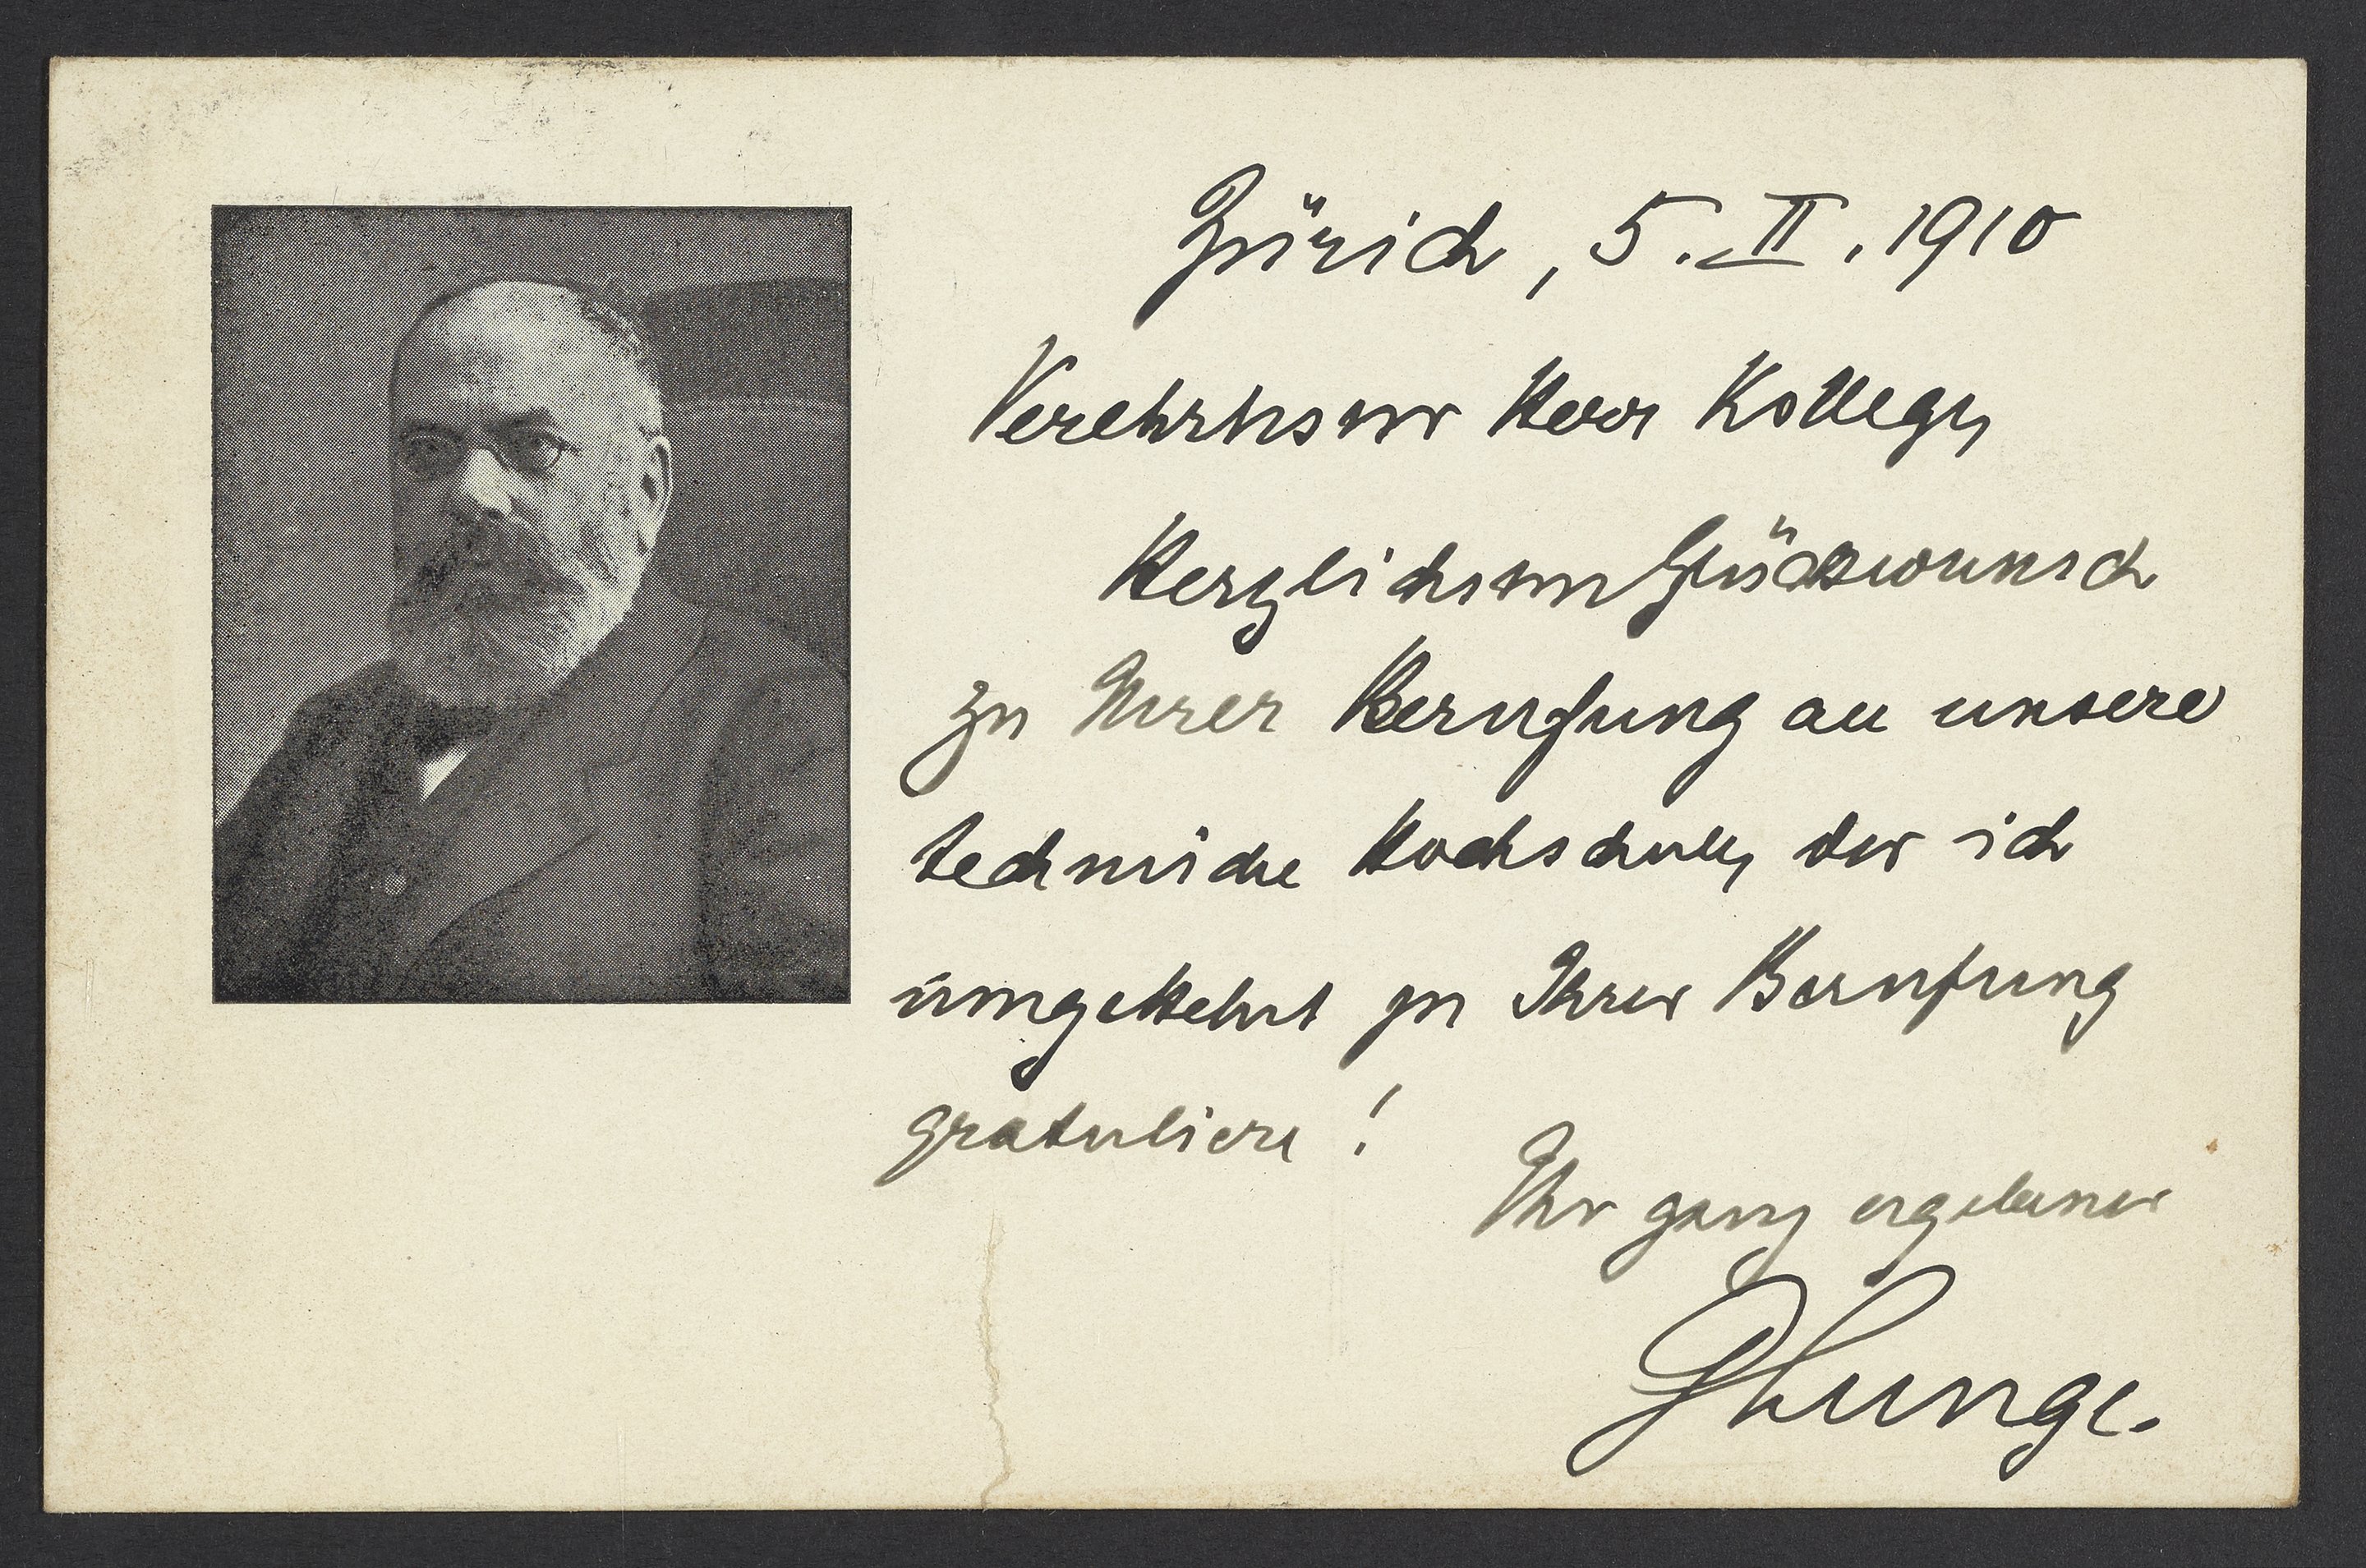 Zürich, 5. II. 1910
Verehrtester Herr Kollege,
Herzlichsten Glückwunsch
zu Ihrer Berufung an unsere
techniche Hochschule, der ich
umgekehrt zu Ihrer Berufung
gratuliere!
Ihr ganz ergebener
G Lunge.